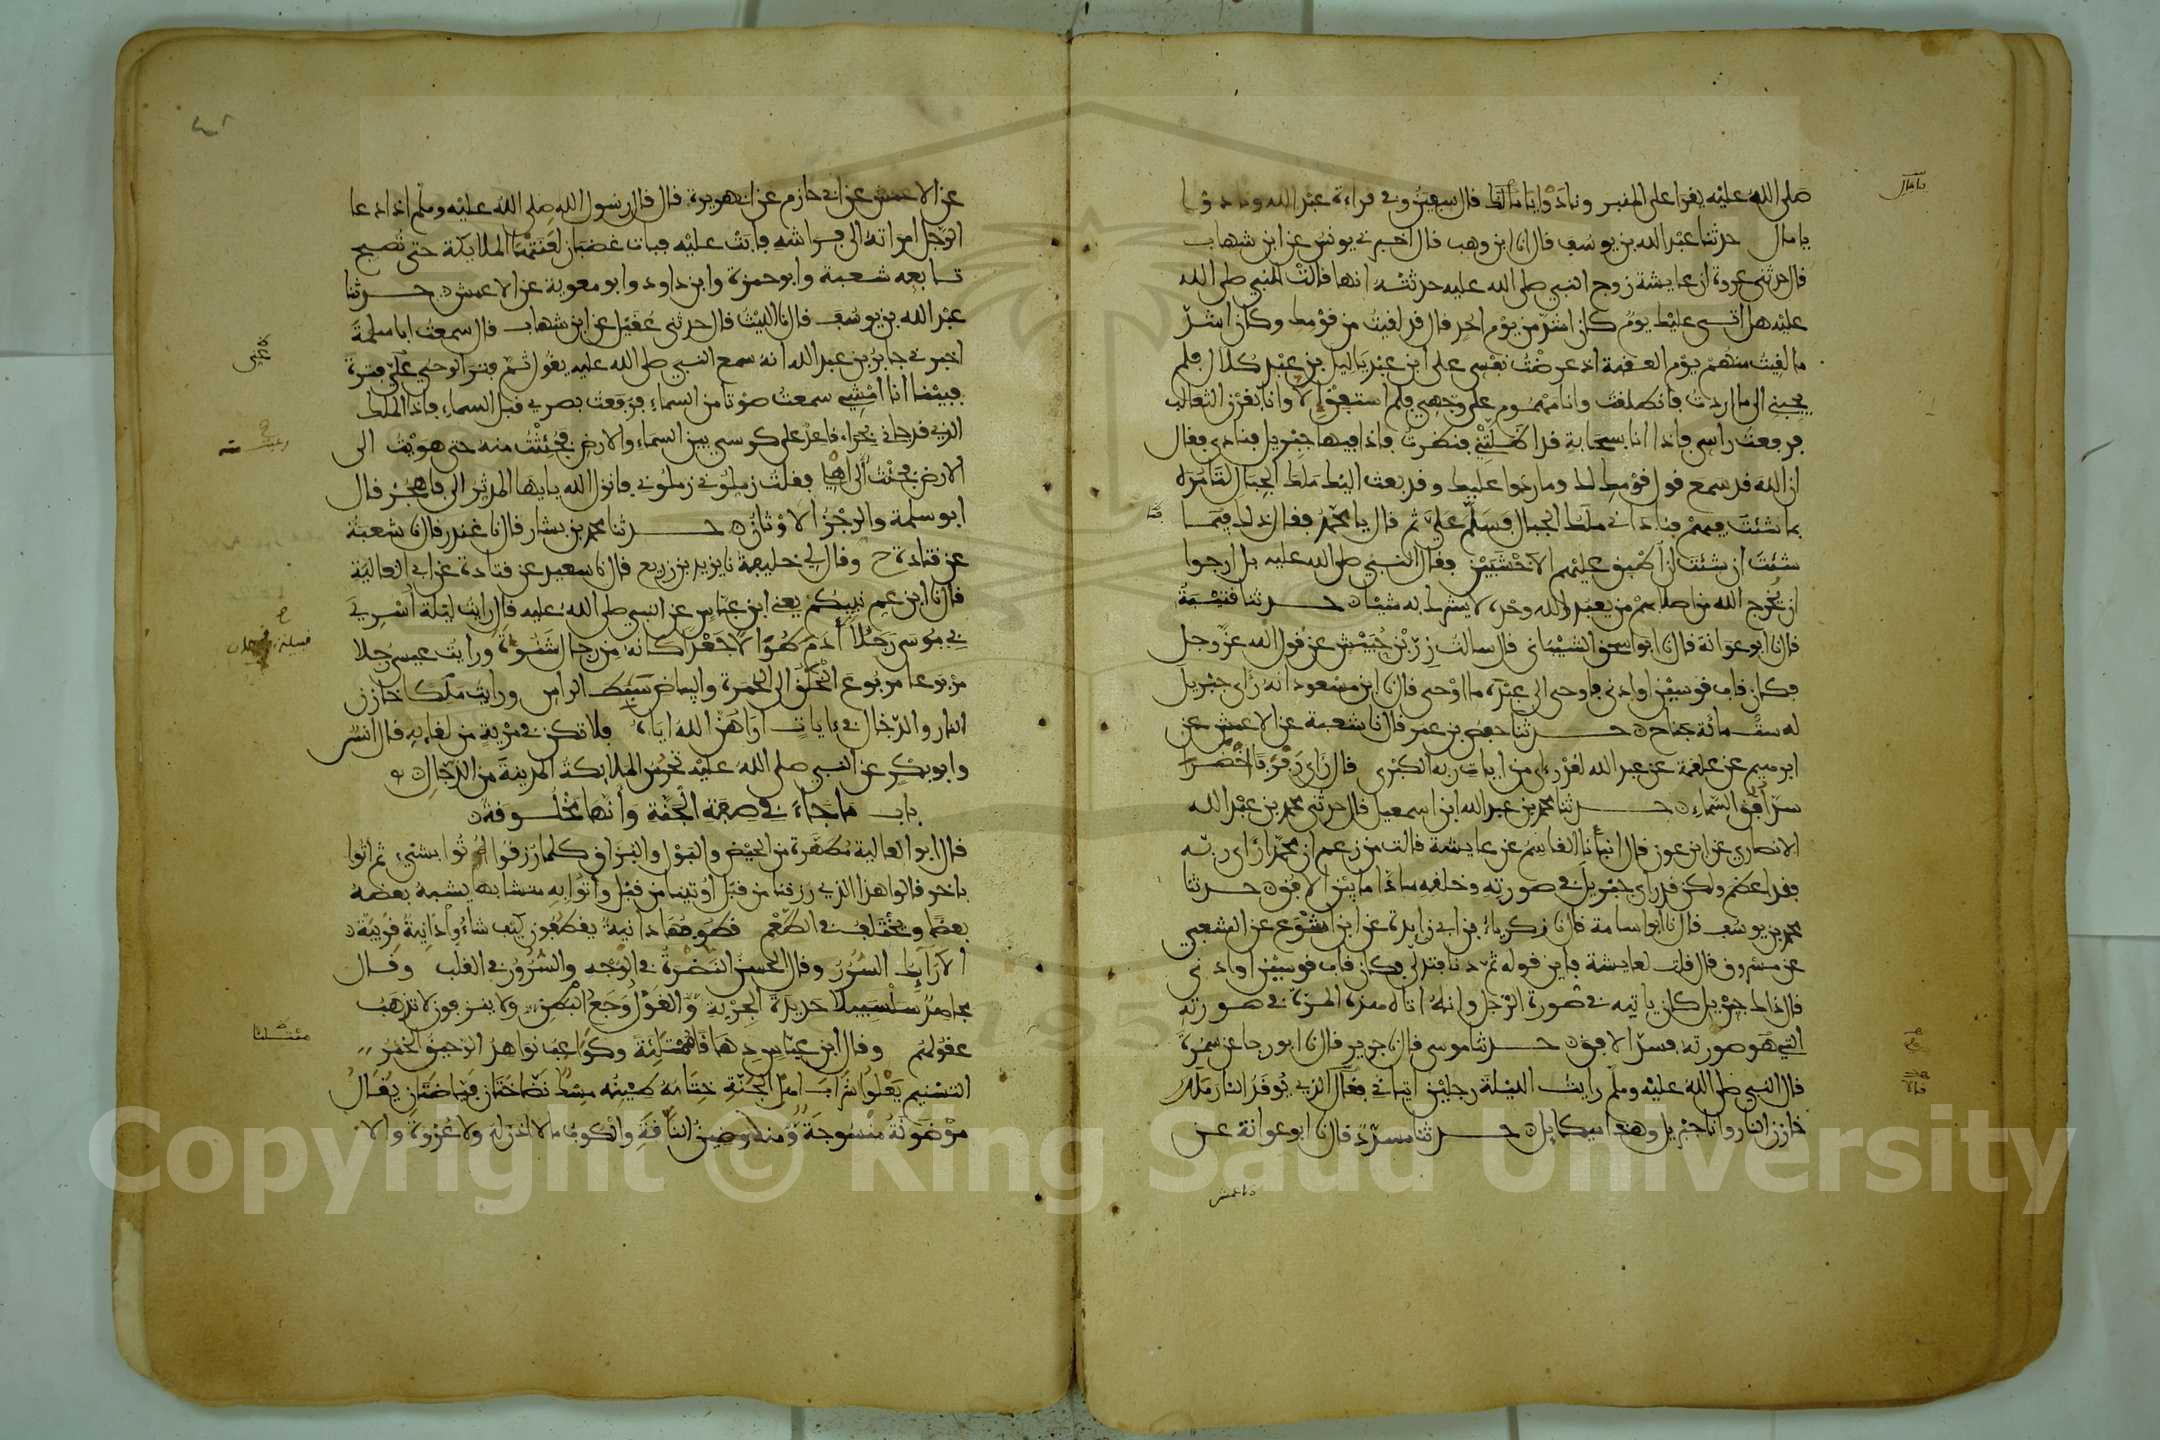 صلى الله عليه يقرا على المنبر ونادوا يا مالك قال سفين وفي قراءة عبد الله ونادوا
يا مال حدثنا عبد الله بن يوسف قال انا ابن وهب قال اخبرني يونس عن ابن شهاب
قال حدثني عروة ان عايشة زوج النبي صلى الله عليه حدثته انها قالت للنبي صلى الله
عليه هل اتى عليك يوم كان اشد من يوم احد قال قد لقيت من قومك وكان اشد
ما لقيت منهم يوم العقبة اذ عرضت نفسي على ابن عبد ياليل بن عبد كلال فلم
يجبني الى ما اردت فانطلقت وانا مهموم على وجهي فلم استفق الا وانا بقرن الثعالب
فرفعت راسي فاذا انا بسحابة قد اظلتني فنظرت فاذا فيها جبريل فناداني فقال
ان الله قد سمع قول قومك لك وما ردوا عليك وقد بعث اليك ملك الجبال لتامره
بما شئت فيهم فناداني ملك الجبال فسلم علي ثم قال يا محمد فقال ذلك فيما
شئت ان شئت ان اطبق عليهم الاخشبين فقال النبي صلى الله عليه بل ارجوا
ان يخرج الله من اصلابهم من يعبد الله وحده لا يشرك به شيئا حدثنا قتيبة
قال نا ابو عوانة قال نا ابو اسحق الشيباني قال سالت زر بن حبيش عن قول الله عز وجل
فكان قاب قوسين او ادنى فاوحى الى عبده ما اوحى قال نا ابن مسعود انه راى جبريل
له ست مائة جناح حدثنا حفص بن عمر قال نا شعبة عن الاعمش عن
ابرهيم عن علقمة عن عبد الله لقد راى من ايات ربه الكبرى قال راى رفرفا اخضر
سد افق السماء حدثنا محمد بن عبد الله ابن اسمعيل قال حدثني محمد بن عبد الله
الانصاري عن ابن عون قال انبانا القاسم عن عايشة قالت من زعم ان محمدا راى ربه
فقد اعظم ولكن قد راى جبريل في صورته وخلقه سادا ما بين الافق حدثنا
محمد بن يوسف قال نا ابو اسامة قال نا زكرياء بن ابي زايدة عن ابن اشوع عن الشعبي
عن مسروق قال قلت لعايشة فاين قوله ثم دنا فتدلى فكان قاب قوسين او ادنى
قال ذاك جبريل كان ياتيه في صورة الرجل وانه اتاه هذه المرة في صورته
التي هو صورته فسد الافق حدثنا موسى قال نا جرير قال نا ابو رجا عن سمرة
قال النبي صلى الله عليه وسلم رايت الليلة رجلين اتياني فقال الذي يوقد النار مالك
خازن النار وانا جبريل وهذا ميكايل حدثنا مسدد قال نا ابو عوانة عن
عن الاعمش عن ابي حازم عن ابي هريرة قال قال رسول الله صلى الله عليه وسلم اذا دعا
الرجل امراته الى فراشه فابت عليه فبات غضبان لعنتها الملايكة حتى تصبح
تابعه شعبة وابو حمزة وابن داود وابو معوية عن الاعمش حدثنا
عبد الله بن يوسف قال نا الليث قال حدثني عقيل عن ابن شهاب قال سمعت ابا سلمة
اخبرني جابر بن عبد الله انه سمع النبي صلى الله عليه يقول ثم فتر الوحي عني فترة
فبينما انا امشي سمعت صوتا من السماء فرفعت بصري قبل السماء فاذا الملك
الذي قد جاني بحراء قاعد على كرسي بين السماء والارض فجئثت منه حتى هويت الى
الارض فجئت الى اهلي فقلت زملوني زملوني فانزل الله يايها المدثر الى فاهجر قال
ابو سلمة والرجز الاوثان حدثنا محمد بن بشار قال نا غندر قال نا شعبة
عن قتادة ح وقال لي خليفة نا يزيد بن زريع قال نا سعيد عن قتادة عن ابي العالية
قال نا ابن عم نبيكم يعني ابن عباس عن النبي صلى الله عليه قال رايت ليلة اسري
بي موسى رجلا ادم طوالا جعدا كانه من رجال شنوة ورايت عيسى رجلا
مربوعا مربوع الخلق الى الحمرة والبياض سبط الراس ورايت ملكا خازن
النار والدجال في ءايات اراهن الله اياه فلا تكن في مرية من لقايه قال انس
وابو بكر عن النبي صلى الله عليه تحرس الملايكة المدينة من الدجال
باب ما جاء في صفة الجنة وانها مخلوقة
قال ابو العالية مطهرة من الحيض والبول والبزاق كلما رزقوا اتوا بشيء ثم اتوا
باخر قالوا هذا الذي رزقنا من قبل اوتينا من قبل واتوا به متشابها يشبه بعضه
بعضا ويختلف في الطعم قطوفها دانية يقطفون كيف شاءوا دانية قريبة
الارايك السرر وقال الحسن النضرة في الوجه والسرور في القلب وقال
مجاهد سلسبيلا حديدة الجرية والغول وجع البطن ولا ينزفون لا تذهب
عقولهم وقال ابن عباس دهاقا ممتلئة وكواعب نواهد الرحيق الخمر
التسنيم يعلوا شراب اهل الجنة ختامه طينه مسك نضاختان فياضتان يقال
موضونة منسوجة ومنه وضين الناقة والكوب ما لا اذن له ولا عروة والا